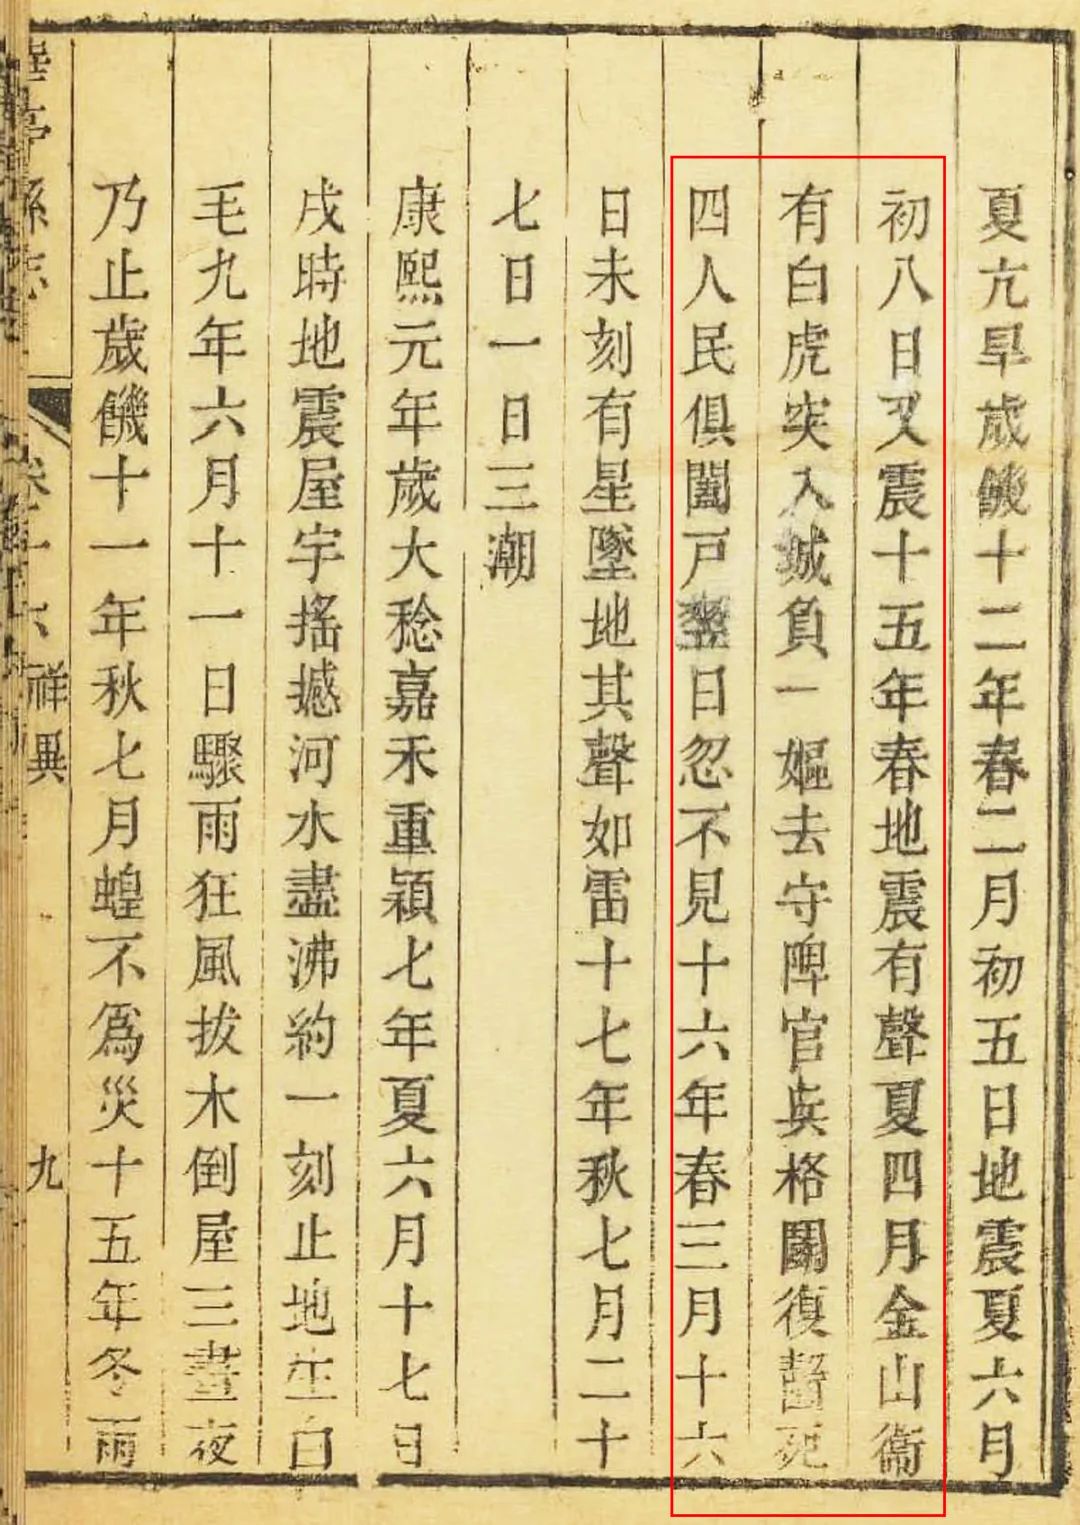 夏亢旱歲饑十二年春二月初五日地震夏六月
初八日又震十五年春地震有聲夏四月金山衞
有白虎突入城負一嫗去守陴官兵格鬬復齧死
四人民俱闔戸翌日忽不見十六年春三月十六
日未刻有星墜地其聲如雷十七年秋七月二十
七日一日三潮
康熙元年歲大稔嘉禾重穎七年夏六月十七日
戌時地震屋宇搖撼河水盡沸約一刻止地生白
毛九年六月十一日驟雨狂風拔木倒屋三晝夜
乃止歲饑十一年秋七月蝗不爲災十五年冬雨
華亭縣志 卷二十六 祥異 九